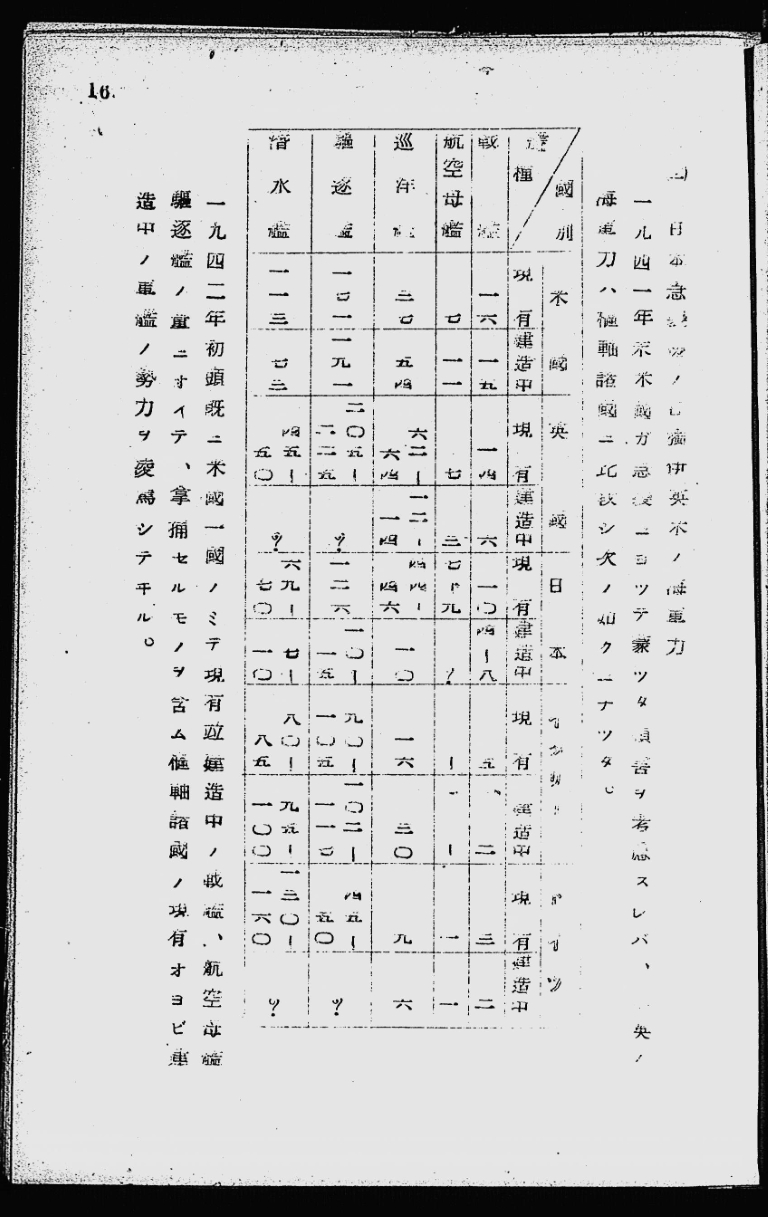 16.
日本急襲後ノ日獨伊英米ノ海軍力
一九四一年末米國ガ急襲ニヨツテ蒙ツタ損害ヲ考慮スレバ、英ノ
海軍力ハ樞軸諸國ニ比較シ次ノ如クニナツタ。
國別 艦種
米國 英國 日本 イタリー ドイツ
現有 建造中 現有 建造中 現有 建造中 現有 建造中 現有 建造中
戰艦 一六 一五 一四 六 一〇 四-八 五 二 三 二
航空母艦 七 一一 七 三 七-九 ? - - 一 一
巡洋艦 三七 五四 六二-六四 一二-一四 四四-四六 一〇 一六 三〇 九 六
驅逐艦 一七一 一九一 二〇五-二二五 ? 一二六 一〇-一五 九〇-一〇五 一〇二- 四五-五〇 ?
潛水艦 一一三 七三 四五-五〇 ? 六九-七〇 七-一〇 八〇-八五 九五-一〇〇 一三〇-一六〇 ?
一九四二年初頭既ニ米國一國ノミデ現有竝建造中ノ戰艦、航空母艦
驅逐艦ノ量ニオイテ、拿捕セルモノヲ含ム樞軸諸國ノ現有オヨビ建
造中ノ軍艦ノ勢力ヲ凌駕シテヰル。